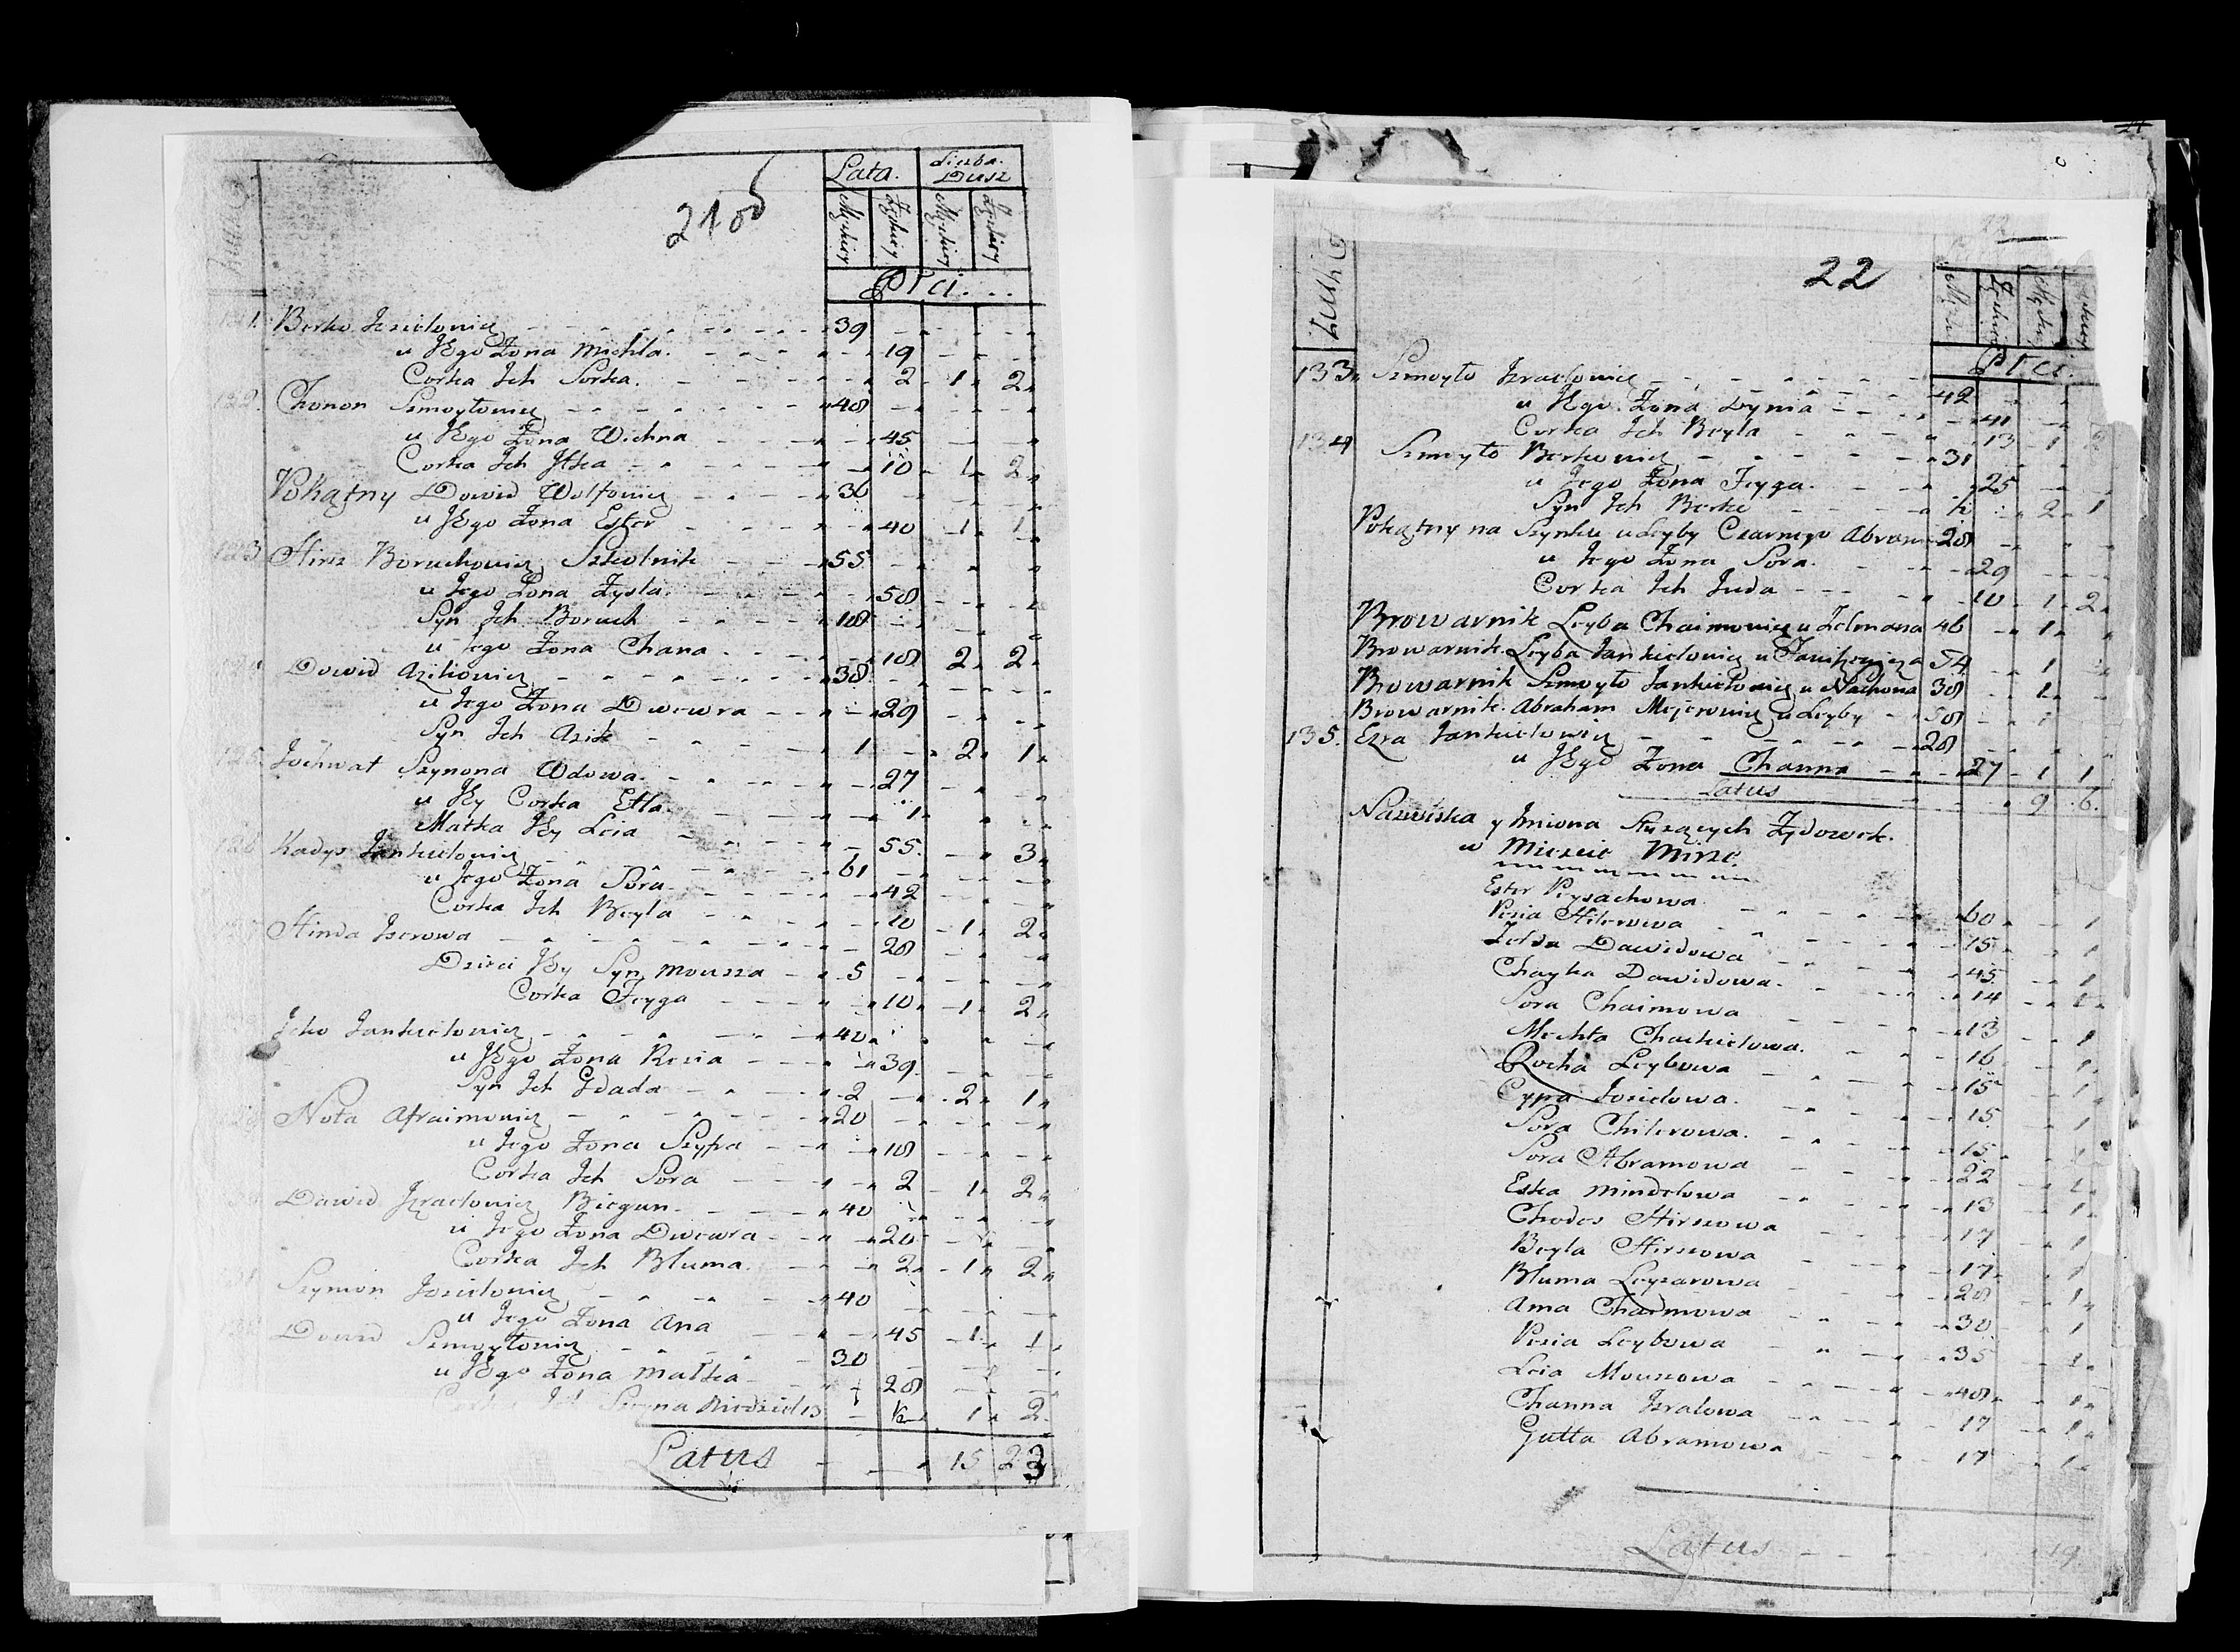 21 od
Lata. Liczba Dusz
Męzkiey Zęskiey Męzkiey Zęskiey
Płci
121. Berko Jzielowicz 39
u Jego Żona Michla. 19
Corka Jch Sorka. 2 1 2
122. Chonon Szmoyłowicz 48
u Jego Żona Wichna 45
Corka Jch Jtka 10 1 2
Pokątny Dowid Wolfowicz 36
u Jego Żona Ester 40 1 1
123 Hirsz Boruchowicz Szkolnik 55
u Jego Żona Zysla. 58
Syn Jch Boruch 18
u Jego Żona Chana 18 2 2
124 Dowid Azikowicz 38
u Jego Żona Dwewra 29
Syn Jch Azik 1 2 1
125. Jochwat Szynona Wdowa 27
u Jey Corka Etla 1
Matka Jey Leia 55 3
126 Kadys Jankielowicz 61
u Jego Żona Sora 42
Corka Jch Beyla 10 1 2
127 Hinda Jserowa 28
Dzieci Jey Syn Mousza 5
Corka Feyga 10 1 2
Jcko Jankielowicz 40
u Jego Żona Resia 39
Syn Jch Gdada 2 2 1
Nota Afraimowicz 20
u Jego Żona Szypra 18
Corka Jch Sora 2 1 2
Dawid Jzraelowicz Biegun 40
u Jego Żona Dwewra 20
Corka Jch Bluma. 2 1 2
Szymon Joszielowicz 40
u Jego Żona Ana 45 1 1
Dowid Szmoyłowicz 30
u Jego Żona Malka 28
Corka Jch 1/2 1 2
Latus 15 23
22
Płci
133 Szmoyło Jzraelowicz 42
u Jego Żona Dynia 41
Corka Jch Beyla 13 1 2
134 Szmoyło Berkowicz 31
u Jego Żona Feyga. 25
Syn Jch Berko 1/2 2 1
Pokątny na Szynku u Leyby Czarnego Abram 28
u Jego Żona Sora. 29
Corka Jch Juda 10 1 2
Browarnik Leyba Chaimowicz u Zelmana 46 1
Browarnik Leyba Jankielowicz u 54 1
Browarnik Szmoyło Jankielowicz u Nachona 38 1
Browarnik Abraham Mejerowicz u Leyby 58 1
135. Ezra Jankielowicz 28
u Jego Żona Channa 27 1 1
Latus 9 6
Nazwiska y Jmiona Służących Żydowek.
w Miescie Mirze
Ester Peysachowa 60 1
Pesia Hilerowa 15 1
Zelda Dawidowa 45 1
Chayka Dawidowa 14 1
Sora Chaimowa 13 1
Mechla Chackielowa. 16 1
Rocha Leybowa 15 1
Cypa Josielowa. 15 1
Sora Chilerowa. 15 1
Sora Abramowa 22 1
Eska Mindelowa 13 1
Chodes Hirszowa 17 1
Beyla Hirszowa 17 1
Bluma Leyzarowa 28 1
Ama Chaimowa 30 1
Pesia Leybowa 35 1
Leia Mouszowa 48 1
Channa Jzralowa 17 1
Gutta Abramowa 17 1
Latus 19